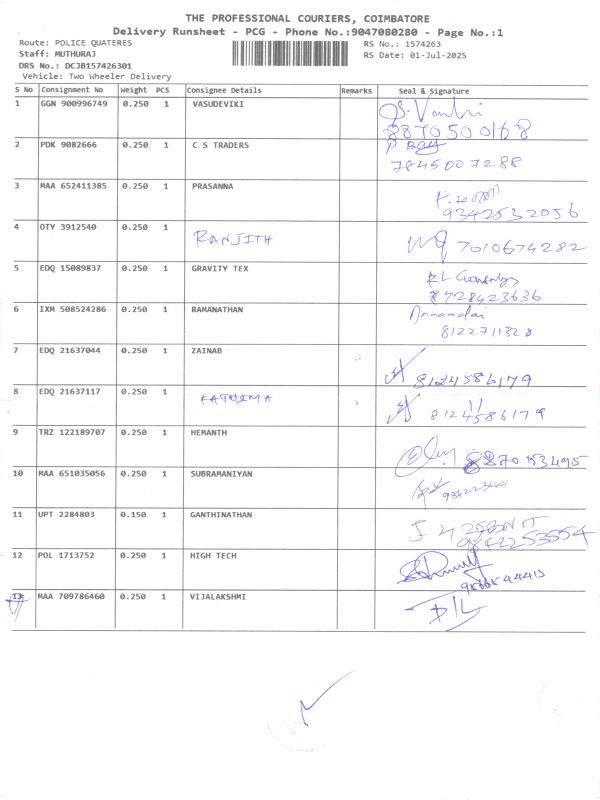 THE PROFESSIONAL COURIERS, COIMBATORE
Delivery Runsheet - PCG - Phone No.:9047080280 - Page No.:1
Route: POLICE QUATERES RS No.: 1574263
Staff: MUTHURAJ RS Date: 01-Jul-2025
DRS No.: DCJB157426301
Vehicle: Two Wheeler Delivery
S No Consignment No Weight PCS Consignee Details Remarks Seal & Signature
1 GGN 900996749 0.250 1 VASUDEVIKI
8870500168
2 PDK 9082666 0.250 1 C S TRADERS
7845007288
3 MAA 652411385 0.250 1 PRASANNA
9342532056
4 OTY 3912540 0.250 1 RANJITH 7010674282
5 EDQ 15089837 0.250 1 GRAVITY TEX
8728423636
6 IXM 508524286 0.250 1 RAMANATHAN Annamalai
8122711328
7 EDQ 21637044 0.250 1 ZAINAB
8124586179
8 EDQ 21637117 0.250 1 FATHIMA 8124586179
9 TRZ 122189707 0.250 1 HEMANTH
10 MAA 651035056 0.250 1 SUBRAMANIYAN
11 UPT 2284803 0.150 1 GANTHINATHAN
9842253554
12 POL 1713752 0.250 1 HIGH TECH
13 MAA 709786460 0.250 1 VIJALAKSHMI